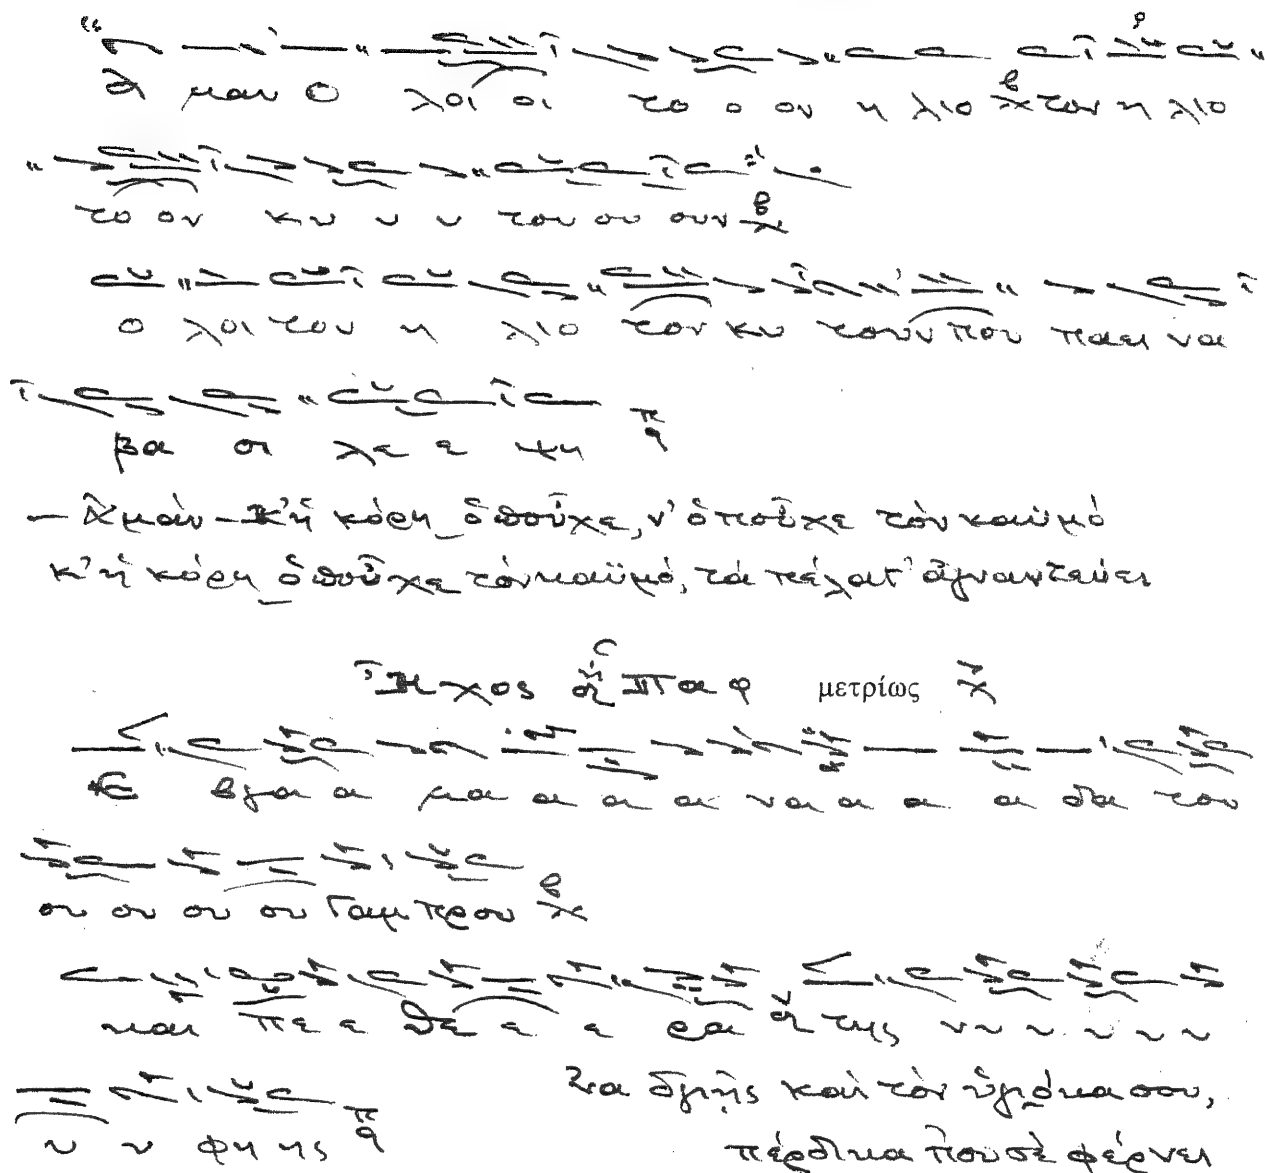 Α μαν Ο λοι οι το ο ον η λιο τον η λιο
το ον κυ υ υ του ου ουν
ο λοι τον η λιο τον κυ τουν που παει να
βα σι λε ε ψη
– Ἀμὰν – Κ' ἡ κόρη ὁποὖχε, ν' ὁποὖχε τὸν καϋμό
κ' ἡ κόρη ὁποὖχε τὸν καϋμό, τά πέλαγ' ἀγναντεύει
Ἦχος Πα φ μετρίως
Ε βγα α μα α α α να α α α δα του
ου ου ου ου Γαμ πρου
και πε ε θε ε ε ρα της νυ υ υ υ υ
υ υ φη ης
Να δγῆς καὶ τὸν ὑγιόκα σου,
πέρδικα ποὺ σὲ φέρνει